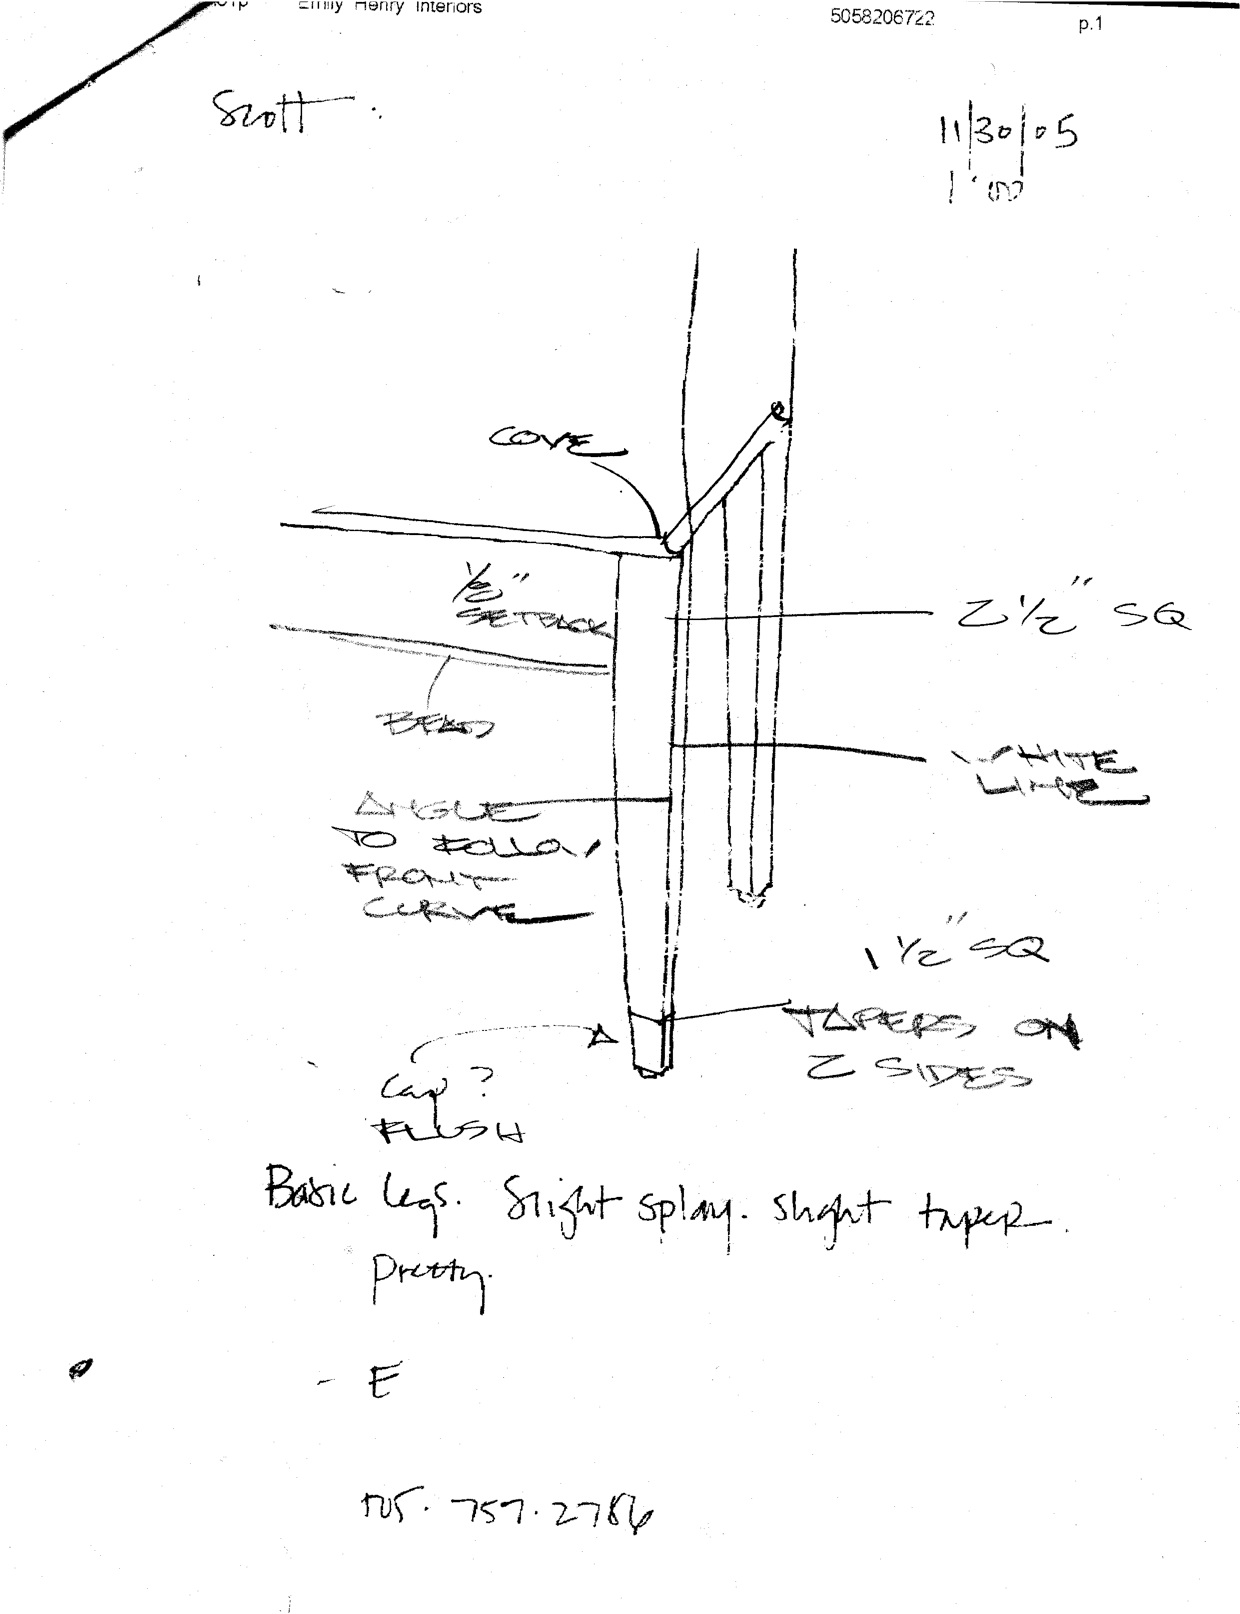 Emily Henry Interiors
5058206722
p.1
Scott:
11/30/05
1:00
COVE
1/2"
SETBACK
2 1/2" SQ
BEAD
WHITE
LINE
ANGLE
TO FOLLOW
FRONT
CURVE
1 1/2" SQ
TAPERS ON
2 SIDES
Cap?
FLUSH
Basic legs. Slight splay. slight taper.
Pretty.
- E
505.757.2786